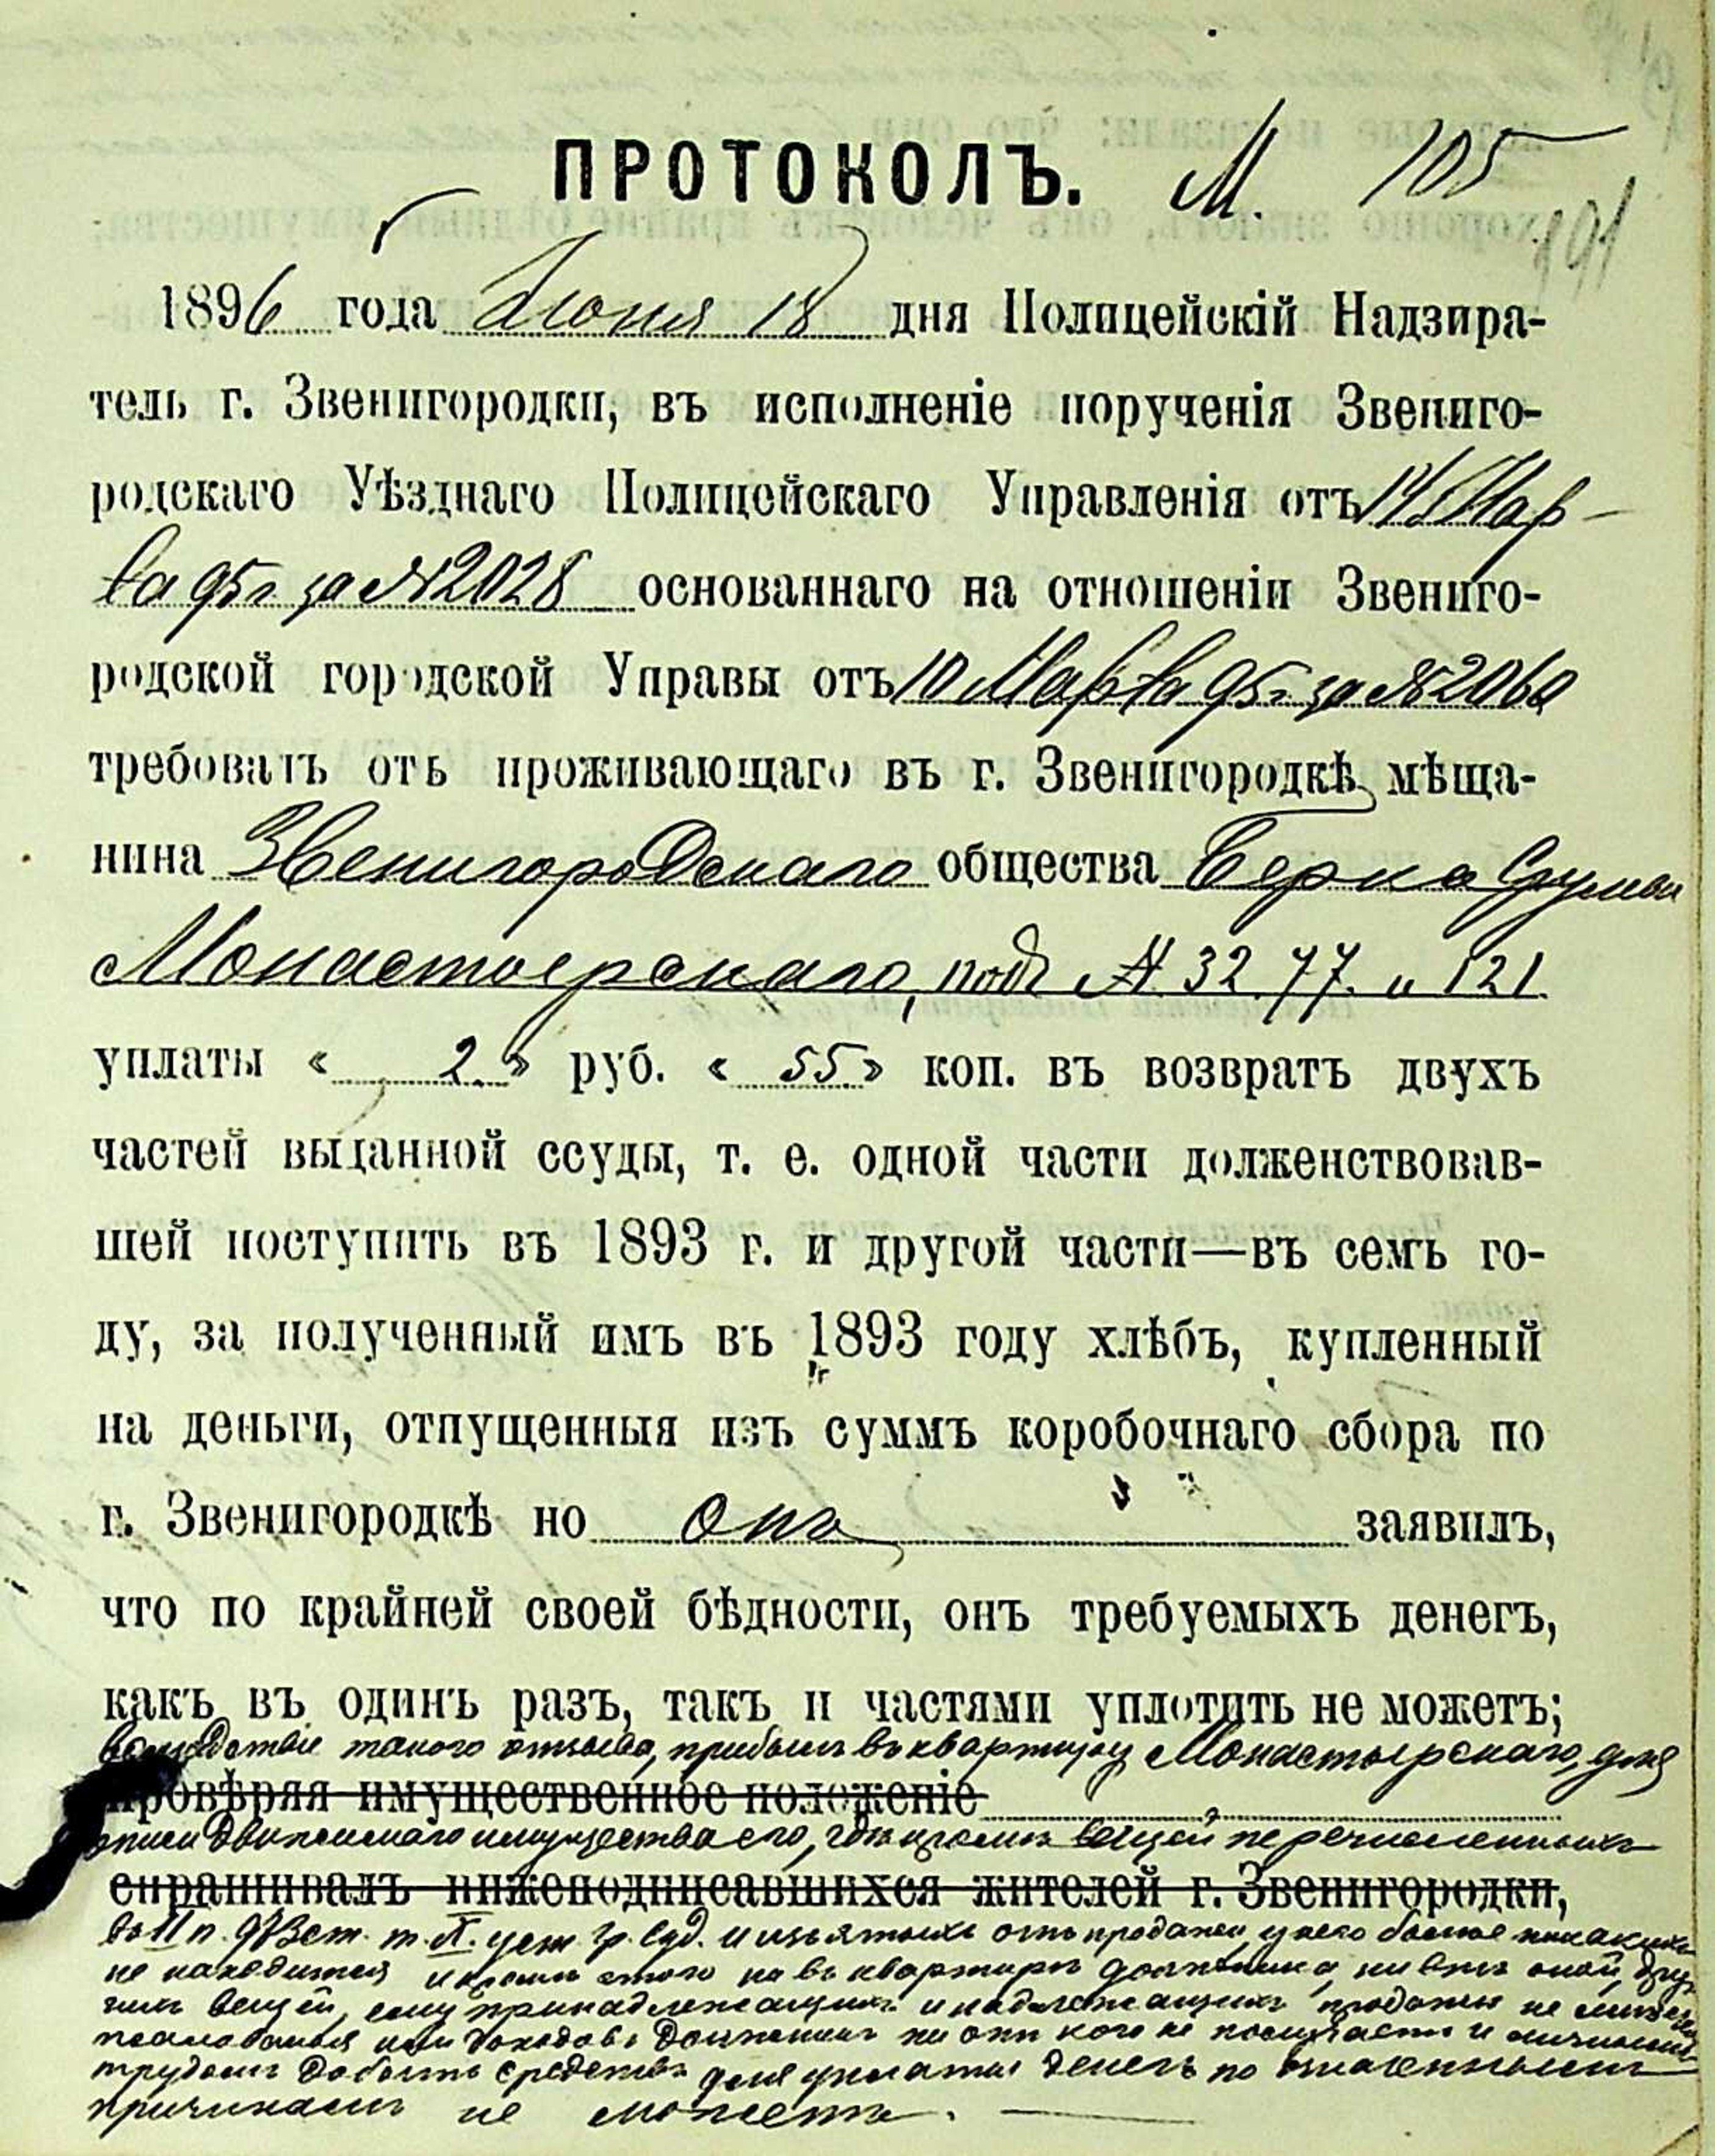 ПРОТОКОЛЪ. М. 105
191
1896 года Июня 18 дня Полицейскій Надзира-
тель г. Звенигородки, въ исполненіе порученія Звениго-
родскаго Уѣзднаго Полицейскаго Управленія отъ 14 Мар-
та 95 г за № 2028 основаннаго на отношеніи Звениго-
родской городской Управы отъ 10 Марта 95 г. за № 2060
требовалъ отъ проживающаго въ г. Звенигородкѣ мѣща-
нина Звенигородскаго общества Берка Срулева
Монастырскаго, подъ № 32. 77. и 121.
уплаты « 2 » руб. « 55 » коп. въ возвратъ двухъ
частей выданной ссуды, т. е. одной части долженствовав-
шей поступить въ 1893 г. и другой части—въ семъ го-
ду, за полученный имъ въ 1893 году хлѣбъ, купленный
на деньги, отпущенныя изъ суммъ коробочнаго сбора по
г. Звенигородкѣ но онъ заявилъ,
что по крайней своей бѣдности, онъ требуемыхъ денегъ,
какъ въ одинъ разъ, такъ и частями уплотить не можетъ;
вслѣдствіе такого отзыва, прибылъ въ квартиру Монастырскаго, для
провѣряя имущественное положеніе
описи движимаго имущества его, гдѣ кромѣ вещей перечисленныхъ
спрашивалъ нижеподписавшихся жителей г. Звенигородки,
въ II п. 973 ст. т. X. уст. гр. суд. и изъятыхъ отъ продажи, у него болѣе никакихъ
не находится и кромѣ этого ни въ квартирѣ должника, ни внѣ оной, дру-
гихъ вещей, ему принадлежащихъ и подлежащихъ продажѣ не имѣется
жалованья или доходовъ должникъ ни отъ кого не получаетъ и личнымъ
трудомъ добыть средствъ для уплаты денегъ по означеннымъ
причинамъ не можетъ.